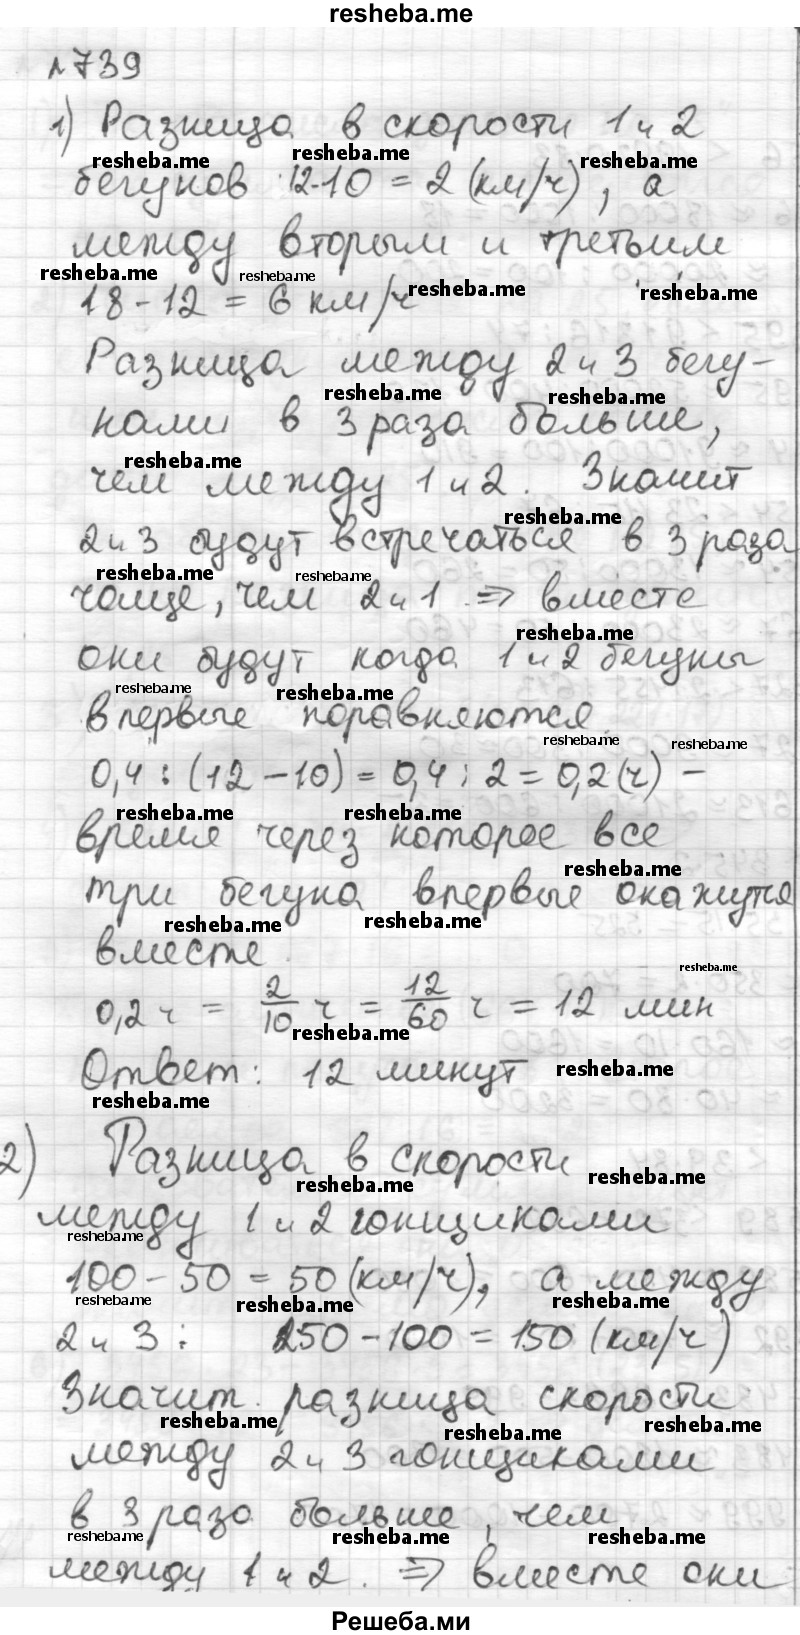 resheba.me
№739
1) Разница в скорости 1 и 2
resheba.me resheba.me resheba.me
бегунов : 12-10 = 2 (км/ч), а
между вторым и третьим
resheba.me resheba.me resheba.me resheba.me
18-12 = 6 км/ч
Разница между 2 и 3 бегу-
resheba.me resheba.me
нами в 3 раза больше,
resheba.me
чем между 1 и 2. Значит
resheba.me
2 и 3 будут встречаться в 3 раза
resheba.me resheba.me
чаще, чем 2 и 1 ⇒ вместе
resheba.me
они будут когда 1 и 2 бегуны
resheba.me resheba.me
впервые поравняются
resheba.me resheba.me
0,4 : (12-10) = 0,4 : 2 = 0,2 (ч) -
resheba.me resheba.me
время через которое все
resheba.me
три бегуна впервые окажутся
resheba.me resheba.me
вместе.
resheba.me
0,2 ч = 2/10 ч = 12/60 ч = 12 мин
resheba.me
Ответ: 12 минут
resheba.me resheba.me
2) Разница в скорости
resheba.me resheba.me
между 1 и 2 гонщиками
resheba.me
100-50 = 50 (км/ч), а между
resheba.me resheba.me resheba.me
2 и 3 : 250-100 = 150 (км/ч)
Значит разница скорости
resheba.me resheba.me resheba.me
между 2 и 3 гонщиками
в 3 раза больше, чем
resheba.me resheba.me resheba.me
между 1 и 2. ⇒ вместе они
Решеба.ми